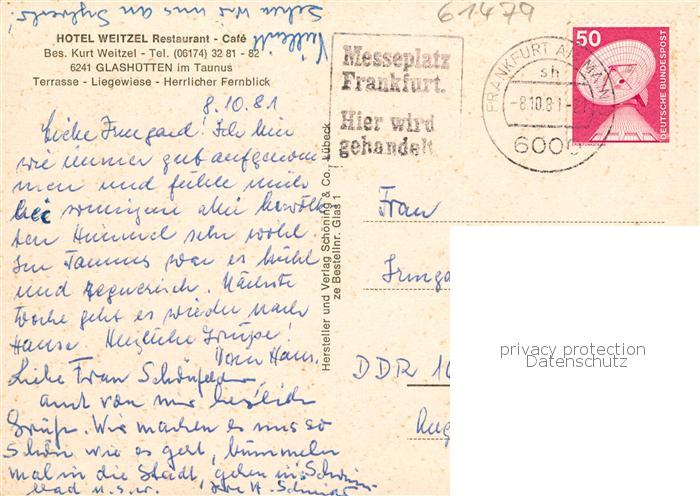 61479
Vielleicht
sehen wir uns an Sylvester!
HOTEL WEITZEL Restaurant - Café
Bes. Kurt Weitzel - Tel. (06174) 32 81 - 82
6241 GLASHÜTTEN im Taunus
Terrasse - Liegewiese - Herrlicher Fernblick
8.10.81
Liebe Irmgard! Ich bin
wie immer gut aufgenom-
men und fühle mich
bei sonnigem aber bewölk-
ten Himmel sehr wohl.
Im Taunus war es kühl
und regnerisch. Nächste
Woche geht es wieder nach
Hause. Herzliche Grüße!
Dein Hans.
Liebe Frau Schönfelder,
auch von mir herzliche
Grüße. Wir machen es uns so
schön wie es geht, bummeln
mal in die Stadt, gehen ins Schwimm-
bad u.s.w. Ihre H. Schmidt
Hersteller und Verlag Schöning & Co., Lübeck
ze Bestellnr. Glas 1
Messeplatz
Frankfurt.
Hier wird
gehandelt
FRANKFURT AM MAIN
sh
-8.10.81-21
6000
50
DEUTSCHE BUNDESPOST
Frau
Irmga
DDR 10
privacy protection
Datenschutz